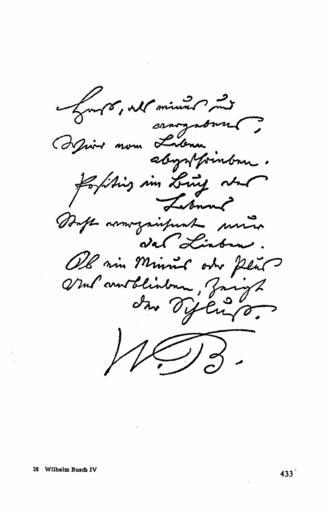 Haß, als minus und
vergebens,
Wird vom Leben
abgeschrieben.
Positiv im Buch des
Lebens
Steht verzeichnet nur
das Lieben.
Ob ein Minus oder Plus
Uns verblieben, zeigt
der Schluß.
W.B.
28 Wilhelm Busch IV
433